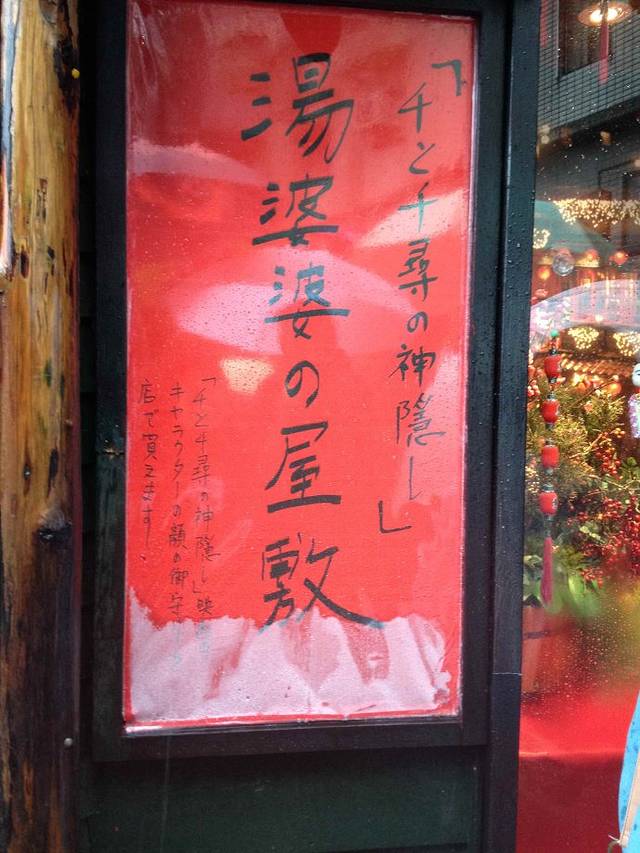 「千と千尋の神隱し」
湯婆婆の屋敷
「千と千尋の神隱し」映画の
キャラクターの顔の御守り
店で買えます。